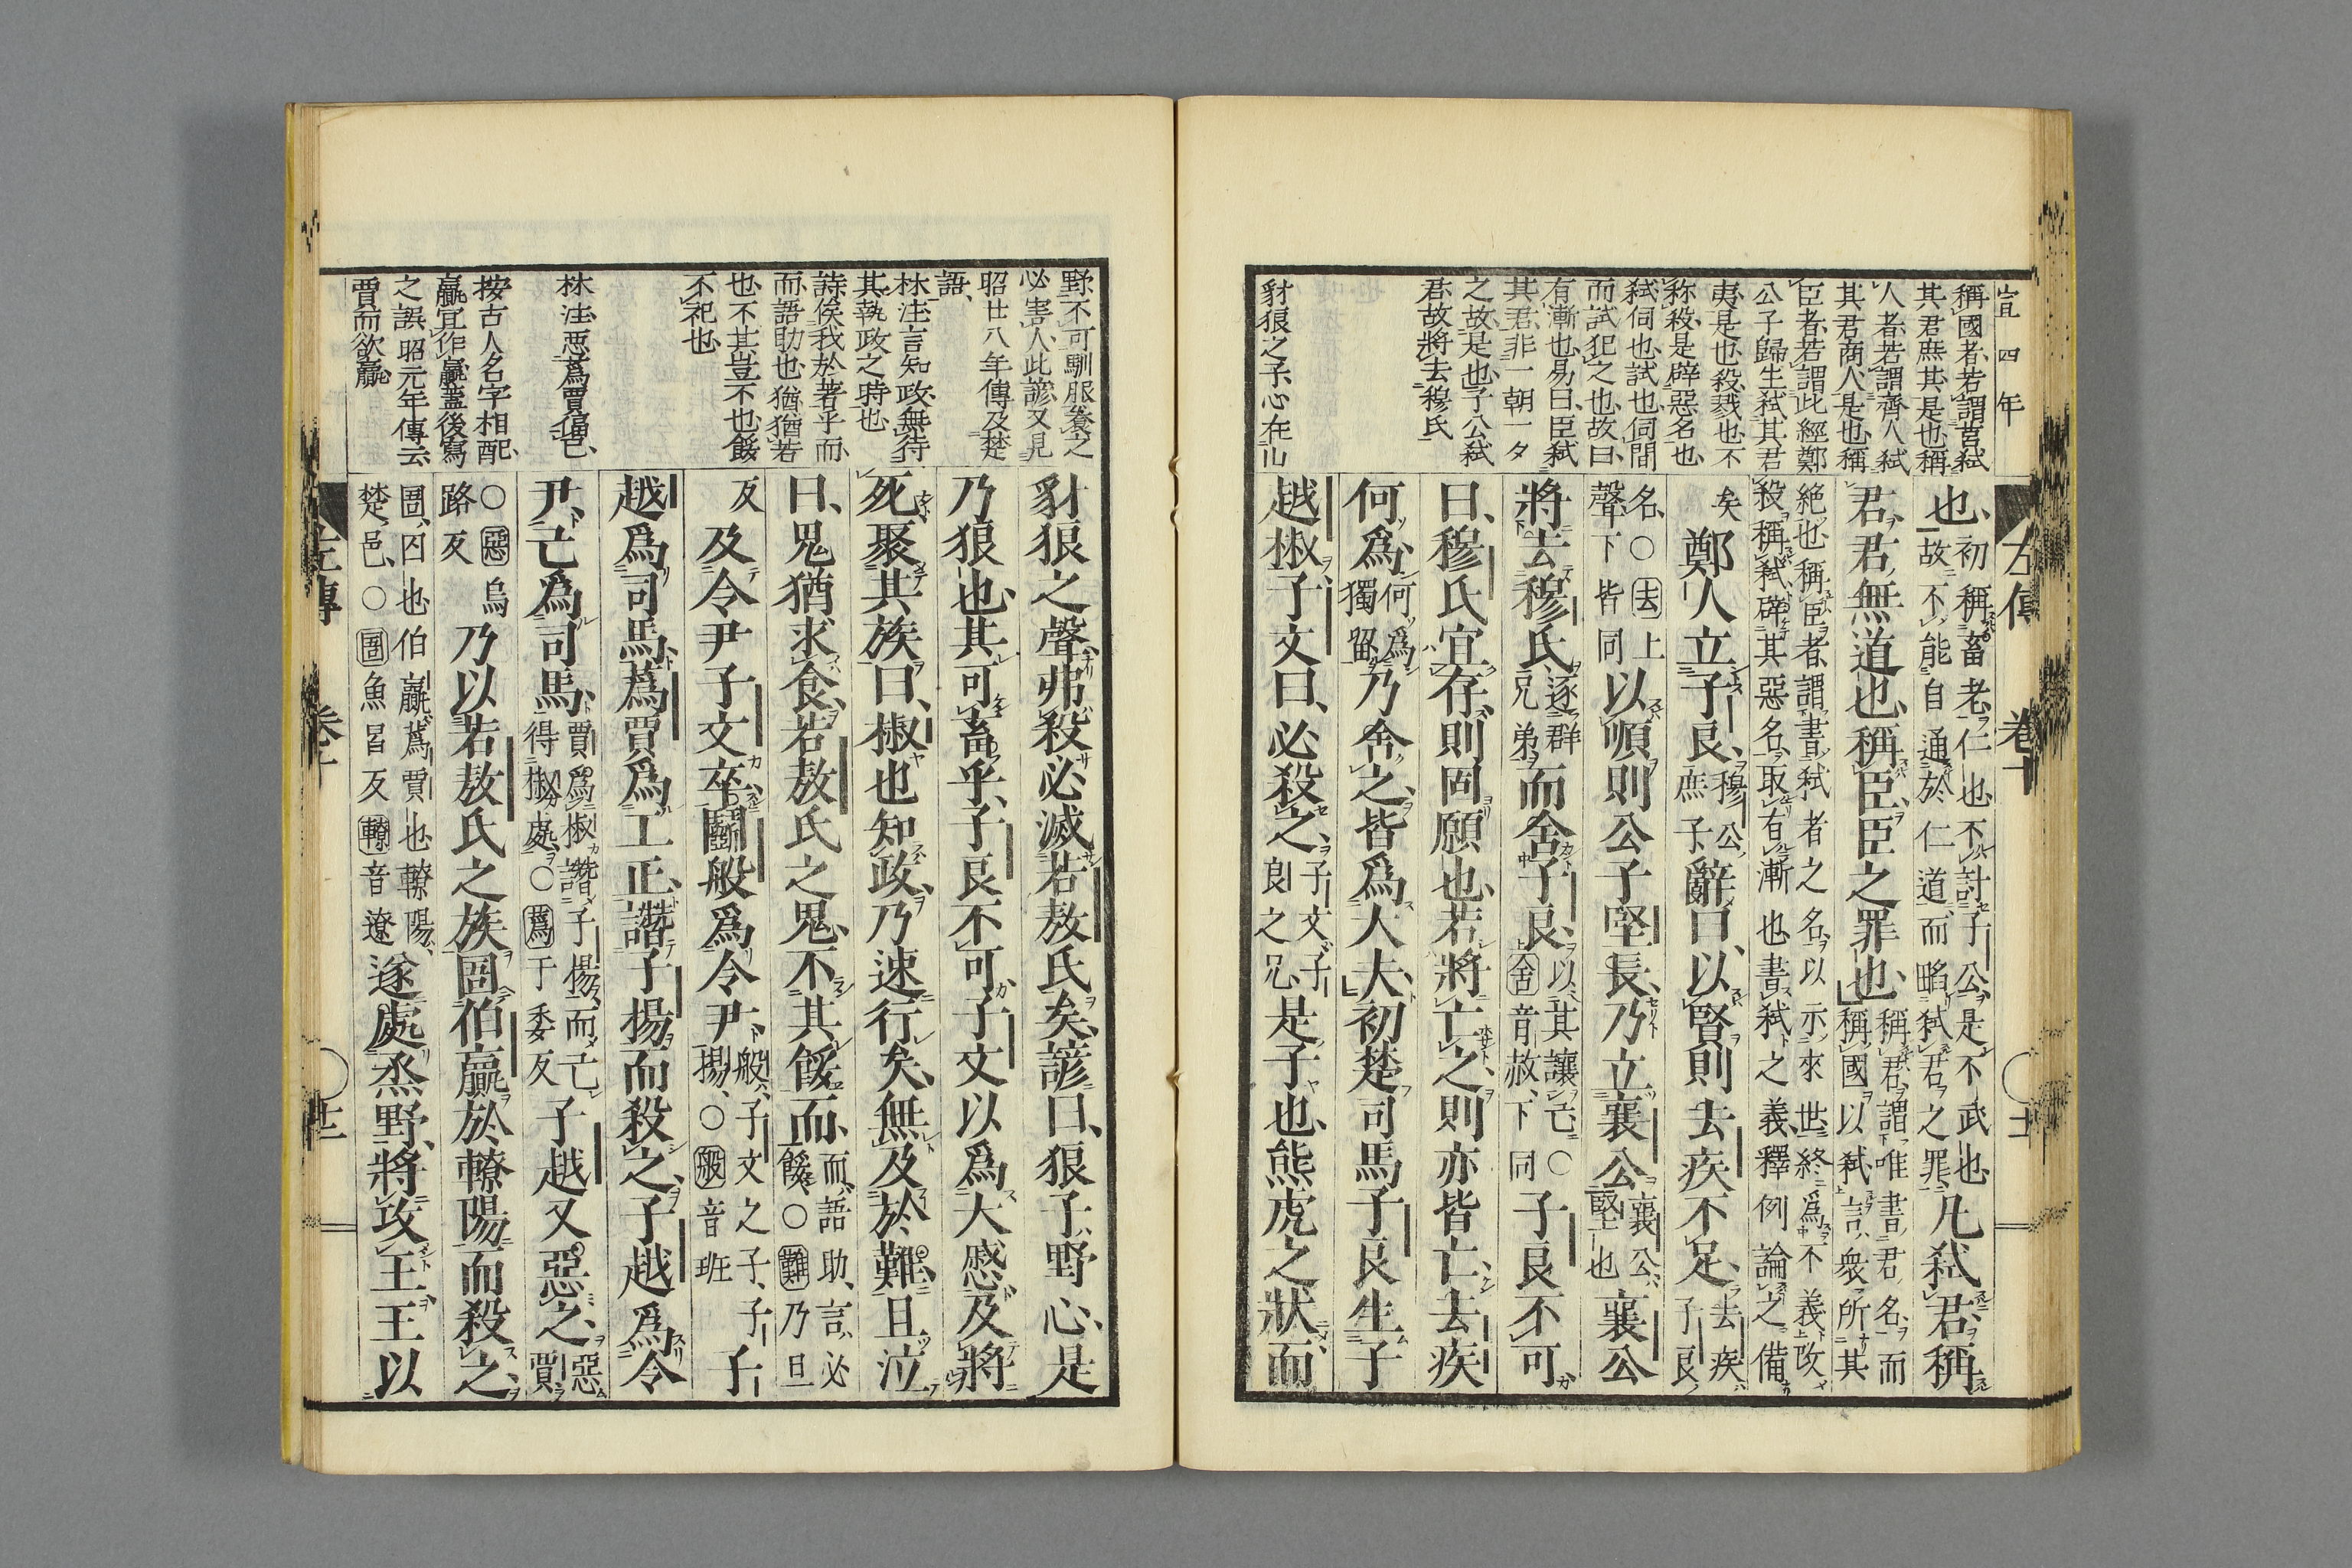 宣四年
稱國者若謂莒弑
其君庶其是也稱
人者若謂齊人弑
其君商人是也稱
臣者若謂此經鄭
公子歸生弑其君
夷是也殺戮也不
称殺是辟惡名也
弑伺也試也伺間
而試犯之也故曰
有漸也易曰臣弑
其君非一朝一夕
之故是也子公弑
君故將去穆氏
豺狼之子心在山
左傳 卷十
也初稱畜老仁也不討子公是不武也
故不能自通於仁道而䧟弑君之罪凡弑君稱
君君無道也稱臣臣之罪也稱君謂唯書君名而
稱國以弑言衆所其
絶也稱臣者謂書弑者之名以示來世終爲不義改
殺稱弑辟其惡名取有漸也書弑之義釋例論之備
矣鄭人立子良穆公
庶子辭曰以賢則去疾不足去疾
子良
名○去上
聲下皆同以順則公子堅長乃立襄公襄公
堅也襄公
將去穆氏逐群
兄弟而舍子良以其讓已○
舍音赦下同子良不可
曰穆氏宜存則固願也若將亡之則亦皆亡去疾
何爲何爲
獨留乃舍之皆爲大夫初楚司馬子良生子
越椒子文曰必殺之子文子
良之兄是子也熊虎之狀而
野不可馴服養之
必害人此諺又見
昭廿八年傳及楚
語
林注言知政無待
其執政之時也
詩俟我於著乎而
而語助也猶猶若
也不其豈不也餒
不祀也
林注惡爲賈僭己
按古人名字相配
嬴宜作贏蓋後寫
之誤昭元年傳云
賈而欲贏
豺狼之聲弗殺必滅若敖氏矣諺曰狼子野心是
乃狼也其可畜乎子良不可子文以爲大慼及將
死聚其族曰椒也知政乃速行矣無及於難且泣
曰鬼猶求食若敖氏之鬼不其餒而而語助言必
餒○難乃旦
反及令尹子文卒鬬般爲令尹般子文之子子
揚○般音班子
越爲司馬蒍賈爲工正譖子揚而殺之子越爲令
尹己爲司馬賈爲椒譖子揚而己
得椒處○蒍于委反子越又惡之惡
賈
○惡烏
路反乃以若敖氏之族圄伯嬴於轑陽而殺之
圄囚也伯嬴蒍賈也轑陽
楚邑○圄魚呂反轑音遼遂處烝野將攻王王以
左傳 卷十